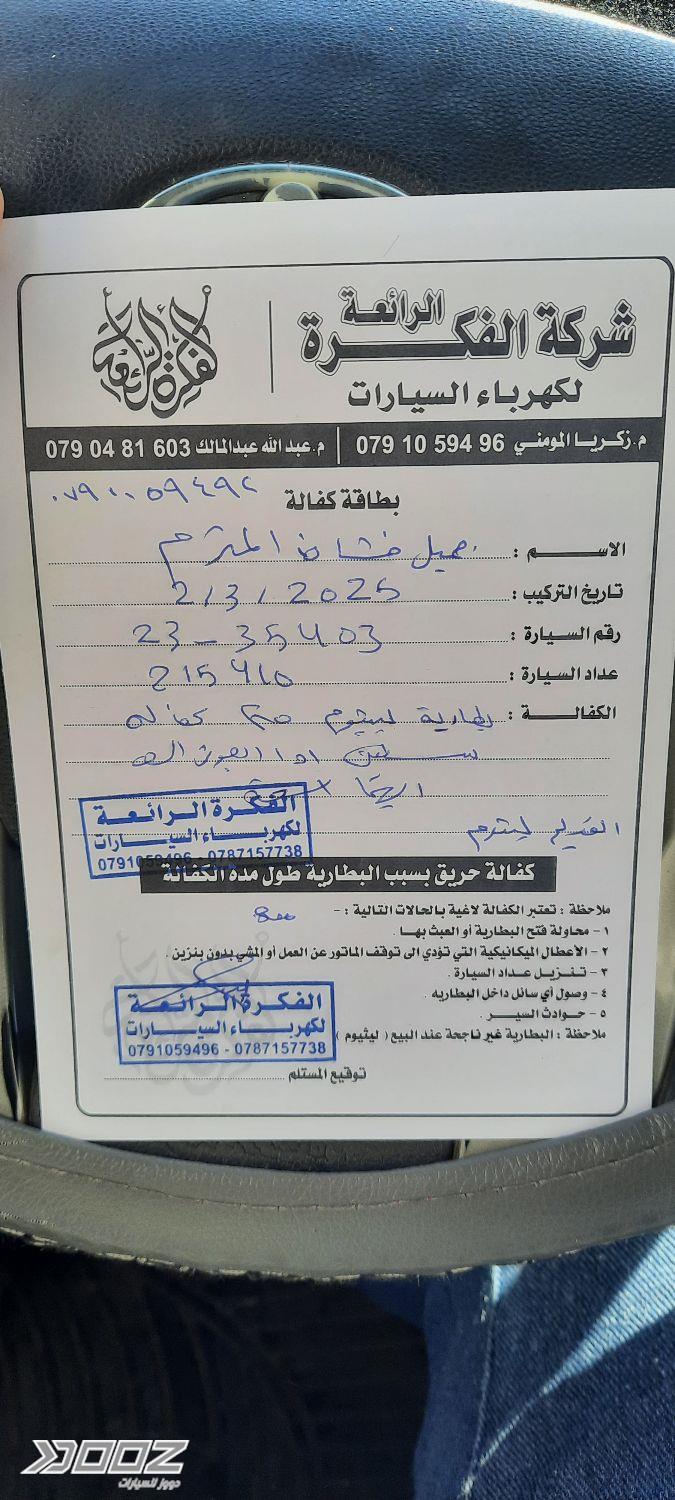 شركة الفكرة الرائعة
لكهرباء السيارات
الفكرة الرائعة
م. زكريا المومني 96 594 10 079 | م. عبد الله عبدالمالك 603 81 04 079
بطاقة كفالة
الاسم : جميل المحترم
تاريخ التركيب : 2/3/2025
رقم السيارة : 23-35403
عداد السيارة :
الكفالة : بطارية ليثيوم مع كفالة
سنتين
الفكرة الرائعة
لكهرباء السيارات
0791059496 - 0787157738
كفالة حريق بسبب البطارية طول مدة الكفالة
ملاحظة : تعتبر الكفالة لاغية بالحالات التالية : -
١- محاولة فتح البطارية أو العبث بها .
٢- الأعطال الميكانيكية التي تؤدي الى توقف الماتور عن العمل أو المشي بدون بنزين .
٣- تنزيل عداد السيارة .
٤- وصول أي سائل داخل البطاريه .
٥- حوادث السير .
ملاحظة : البطارية غير ناجحة عند البيع ( ليثيوم )
الفكرة الرائعة
لكهرباء السيارات
0791059496 - 0787157738
توقيع المستلم
DOOZ
دووز للسيارات